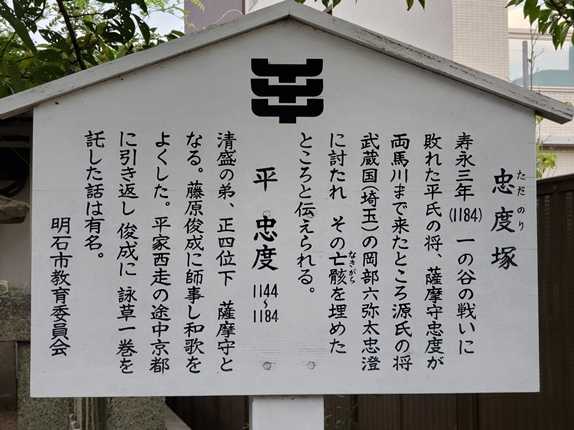 忠度塚
ただのり
寿永三年(1184) 一の谷の戦いに
敗れた平氏の将、薩摩守忠度が
両馬川まで来たところ源氏の将
武蔵国(埼玉)の岡部六弥太忠澄
に討たれ その亡骸を埋めた
なきがら
ところと伝えられる。
平 忠度 1144〜1184
清盛の弟、正四位下 薩摩守と
なる。藤原俊成に師事し和歌を
よくした。平家西走の途中京都
に引き返し 俊成に 詠草一巻を
託した話は有名。
明石市教育委員会